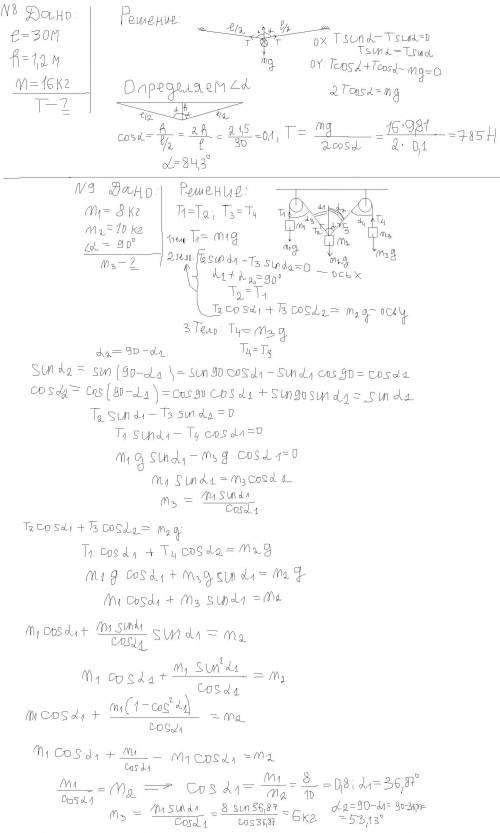 N8 Дано:
l=30м
h=1,2 м
m=16кг
T-?
Решение:
l/2 l/2
T T
mg
OX Tsinα-Tsinα=0
Tsinα-Tsinα
OY Tcosα+Tcosα-mg=0
2Tcosα=mg
Определяем ∠α
α h
l/2 l/2
cosα = h/(l/2) = 2h/l = 2·1,5/30 = 0,1; T = mg/(2cosα) = 16·9,81/(2·0,1) = 785H
α=84,3°
N9 Дано:
m1=8 кг
m2=10 кг
∠α = 90°
m3-?
Решение:
T1=T2; T3=T4
1тело T1=m1g
2тело: T2sinα1-T3sinα2=0 - ось x
α1+α2=90°
T2=T1
T2cosα1+T3cosα2=m2g-осьy
3 Тело: T4=m3g
T4=T3
T1 m1 m1g α1 α2 α1 T2 T3 α2 m2 m2g T4 m3 m3g
α2=90-α1
sinα2=sin(90-α1)=sin90cosα1-sinα1cos90=cosα1
cosα2=cos(90-α1)=cos90cosα1+sin90sinα1=sinα1
T2sinα1-T3sinα2=0
T1sinα1-T4cosα1=0
m1gsinα1-m3gcosα1=0
m1sinα1=m3cosα1
m3 = m1sinα1/cosα1
T2cosα1+T3cosα2=m2g
T1cosα1+T4cosα2=m2g
m1gcosα1+m3gsinα1=m2g
m1cosα1+m3sinα1=m2
m1cosα1+(m1sinα1/cosα1)sinα1=m2
m1cosα1+m1sin²α1/cosα1=m2
m1cosα1+m1(1-cos²α1)/cosα1=m2
m1cosα1+m1/cosα1-m1cosα1=m2
m1/cosα1=m2 ⟹ cosα1=m1/m2=8/10=0,8; α1=36,87°
m3=m1sinα1/cosα1=8sin36,87/cos36,87=6кг
α2=90-α1=90-36,87=
=53,13°